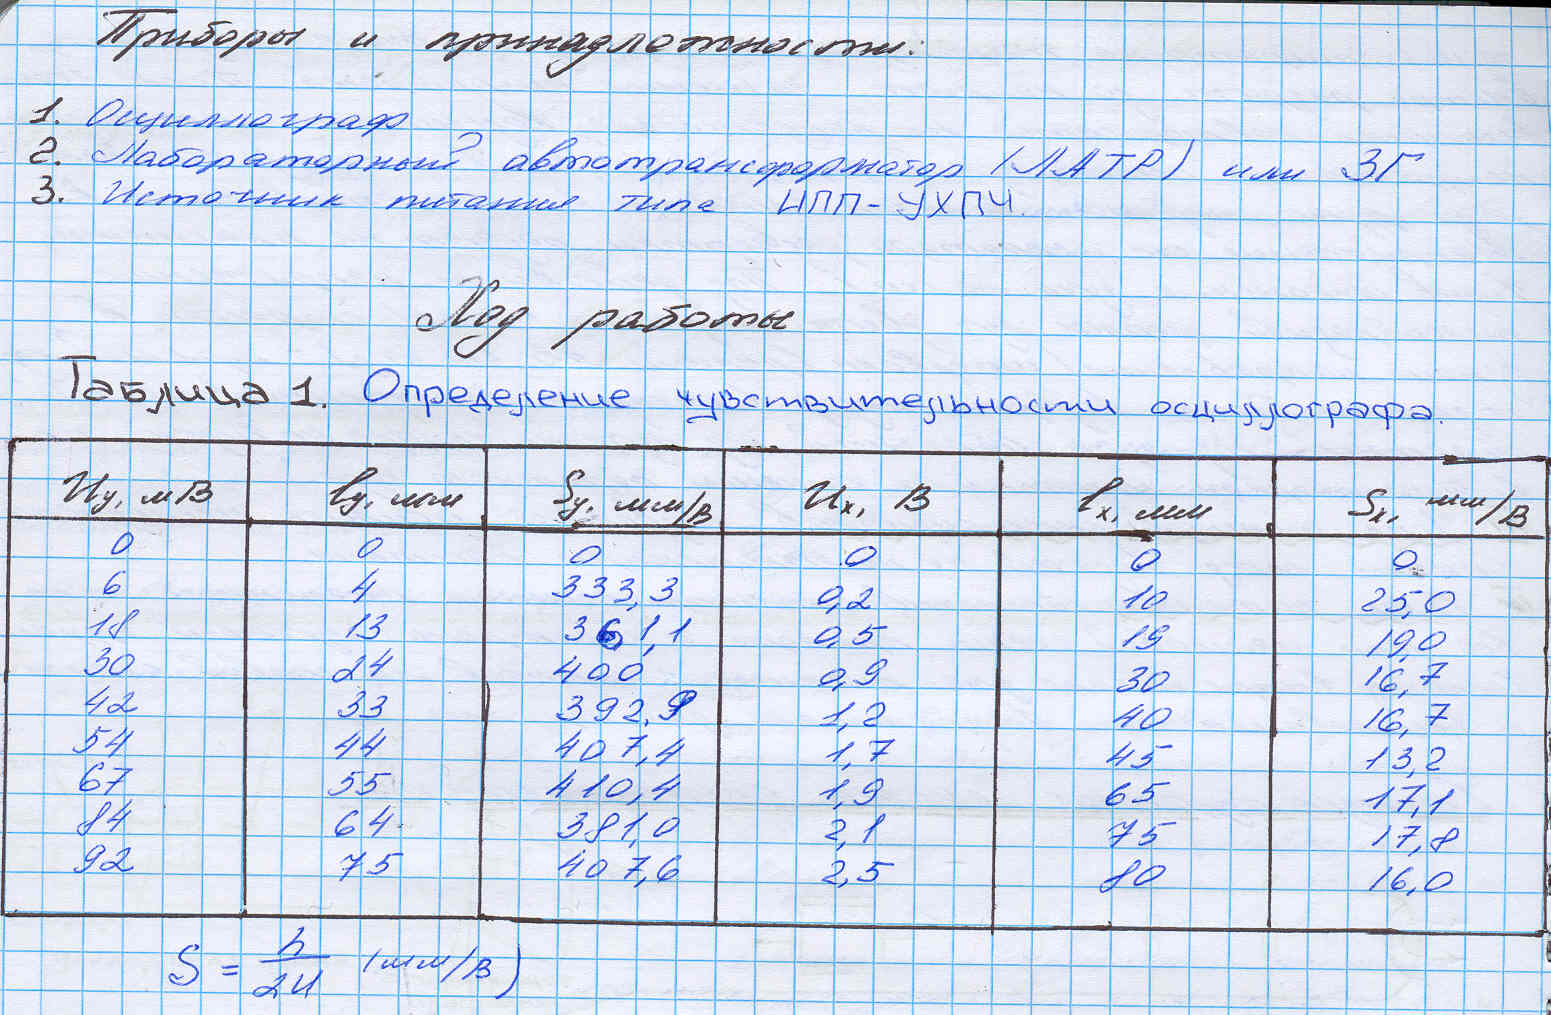 Приборы и принадлежности:
1. Осциллограф
2. Лабораторный автотрансформатор (ЛАТР) или ЗГ
3. Источник питания типа ИПП-УХПЧ.
Ход работы
Таблица 1. Определение чувствительности осциллографа.
Uy, мВ ly, мм Sy, мм/В Ux, В lx, мм Sx, мм/В
0 0 0 0 0 0
6 4 333,3 0,2 10 25,0
18 13 361,1 0,5 19 19,0
30 24 400 0,9 30 16,7
42 33 392,9 1,2 40 16,7
54 44 407,4 1,7 45 13,2
67 55 410,4 1,9 65 17,1
84 64 381,0 2,1 75 17,8
92 75 407,6 2,5 80 16,0
S = h/2U (мм/В)